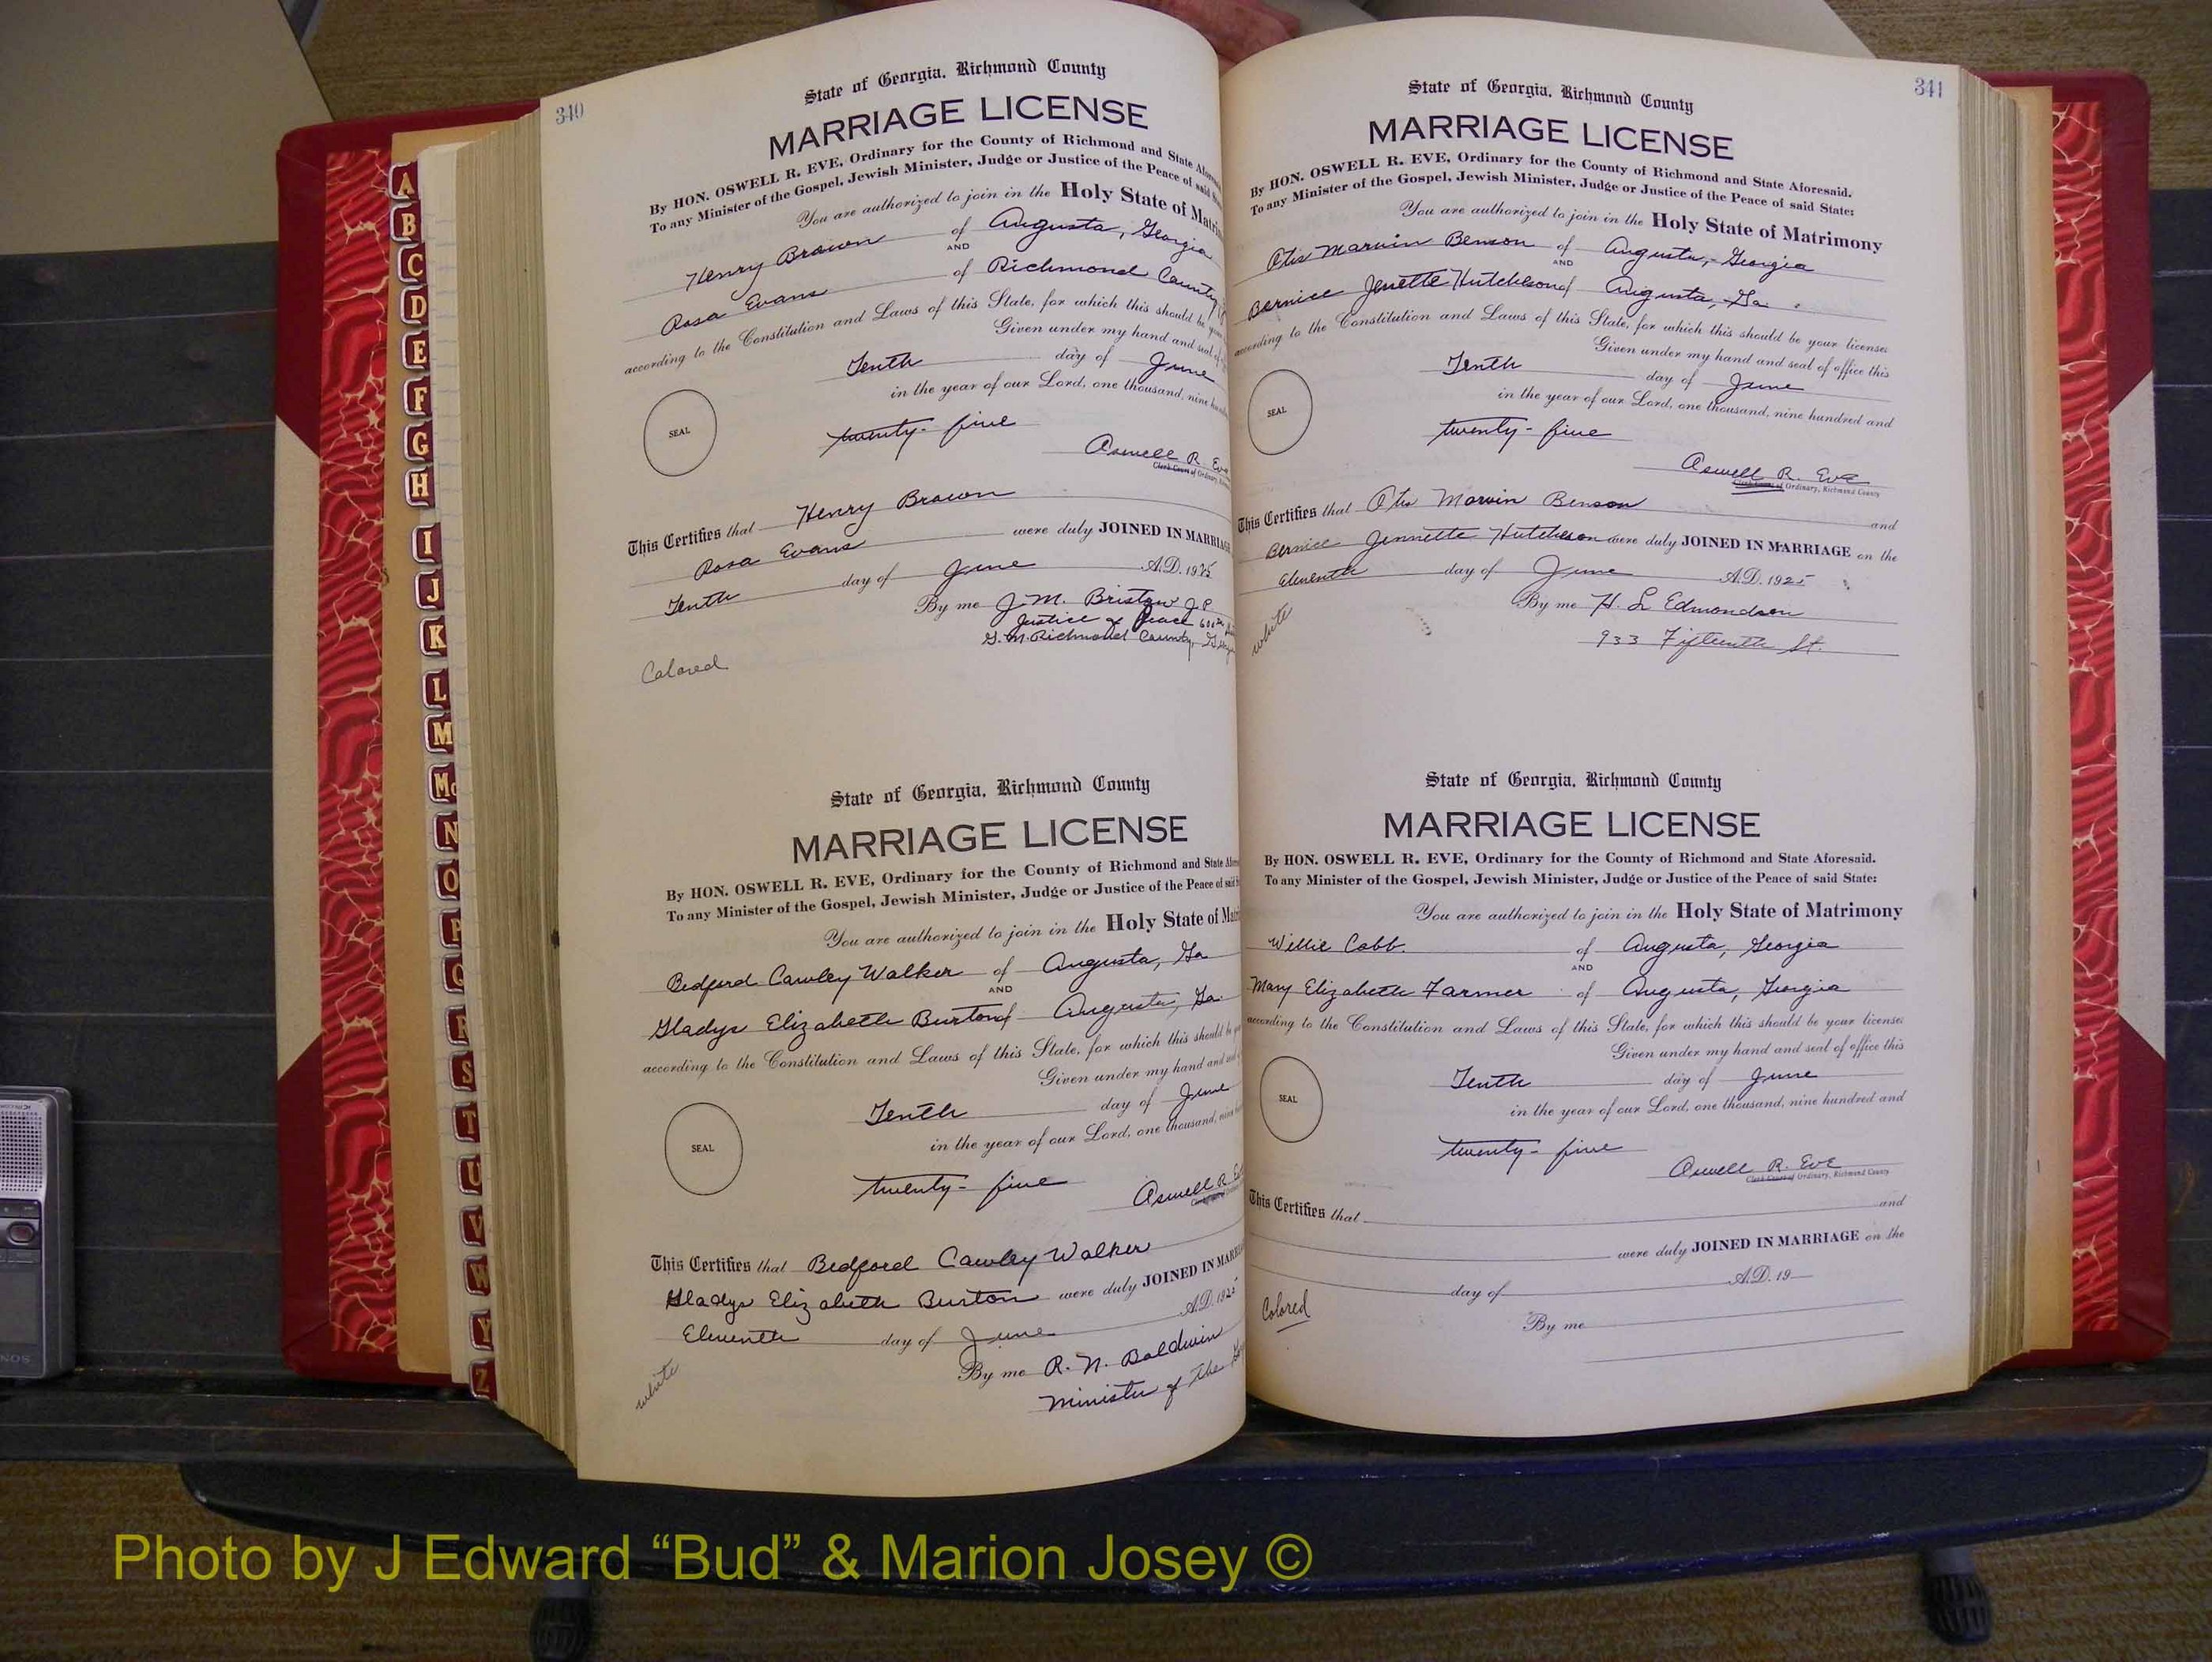 340
State of Georgia, Richmond County
MARRIAGE LICENSE
By HON. OSWELL R. EVE, Ordinary for the County of Richmond and State
To any Minister of the Gospel, Jewish Minister, Judge or Justice of the Peace of said
You are authorized to join in the Holy State of
Henry Brown of Augusta, Georgia
AND
Rosa Evans of Richmond County
according to the Constitution and Laws of this State, for which this should be
Given under my hand and seal of
Tenth day of June
in the year of our Lord, one thousand, nine
SEAL
twenty-five
Oswell R. Eve
Clerk Court of Ordinary,
This Certifies that Henry Brown
Rosa Evans were duly JOINED IN MARRIAGE
Tenth day of June A.D. 1925
By me J. M. Bristow J.P.
Justice of Peace 600th
G. M. Richmond County,
Colored
State of Georgia, Richmond County
MARRIAGE LICENSE
By HON. OSWELL R. EVE, Ordinary for the County of Richmond and State
To any Minister of the Gospel, Jewish Minister, Judge or Justice of the Peace of said
You are authorized to join in the Holy State of
Bedford Cawley Walker of Augusta, Ga
AND
Gladys Elizabeth Burton of Augusta, Ga.
according to the Constitution and Laws of this State, for which this should be
Given under my hand and seal
Tenth day of June
in the year of our Lord, one thousand, nine
SEAL
twenty-five
Oswell R. Eve
This Certifies that Bedford Cawley Walker
Gladys Elizabeth Burton were duly JOINED IN
Eleventh day of June A.D. 1925
By me R. N. Baldwin
Minister of the
white
341
State of Georgia, Richmond County
MARRIAGE LICENSE
By HON. OSWELL R. EVE, Ordinary for the County of Richmond and State Aforesaid.
To any Minister of the Gospel, Jewish Minister, Judge or Justice of the Peace of said State:
You are authorized to join in the Holy State of Matrimony
Otis Marvin Benson of Augusta, Georgia
AND
Bernice Jenette Hutcheson of Augusta, Ga.
according to the Constitution and Laws of this State, for which this should be your license
Given under my hand and seal of office this
Tenth day of June
in the year of our Lord, one thousand, nine hundred and
SEAL
twenty-five
Oswell R. Eve
Clerk Court of Ordinary, Richmond County
This Certifies that Otis Marvin Benson and
Bernice Jennette Hutcheson were duly JOINED IN MARRIAGE on the
Eleventh day of June A.D. 1925
By me H. L. Edmondson
933 Fifteenth St.
white
State of Georgia, Richmond County
MARRIAGE LICENSE
By HON. OSWELL R. EVE, Ordinary for the County of Richmond and State Aforesaid.
To any Minister of the Gospel, Jewish Minister, Judge or Justice of the Peace of said State:
You are authorized to join in the Holy State of Matrimony
Willie Cobb of Augusta, Georgia
AND
Mary Elizabeth Farmer of Augusta, Georgia
according to the Constitution and Laws of this State, for which this should be your license
Given under my hand and seal of office this
Tenth day of June
in the year of our Lord, one thousand, nine hundred and
SEAL
twenty-five
Oswell R. Eve
Clerk Court of Ordinary, Richmond County
This Certifies that and
were duly JOINED IN MARRIAGE on the
day of A.D. 19
By me
Colored
A
B
C
D
E
F
G
H
I
J
K
L
M
Mc
N
O
P
Q
R
S
T
U
V
W
Y
Z
Photo by J Edward “Bud” & Marion Josey ©